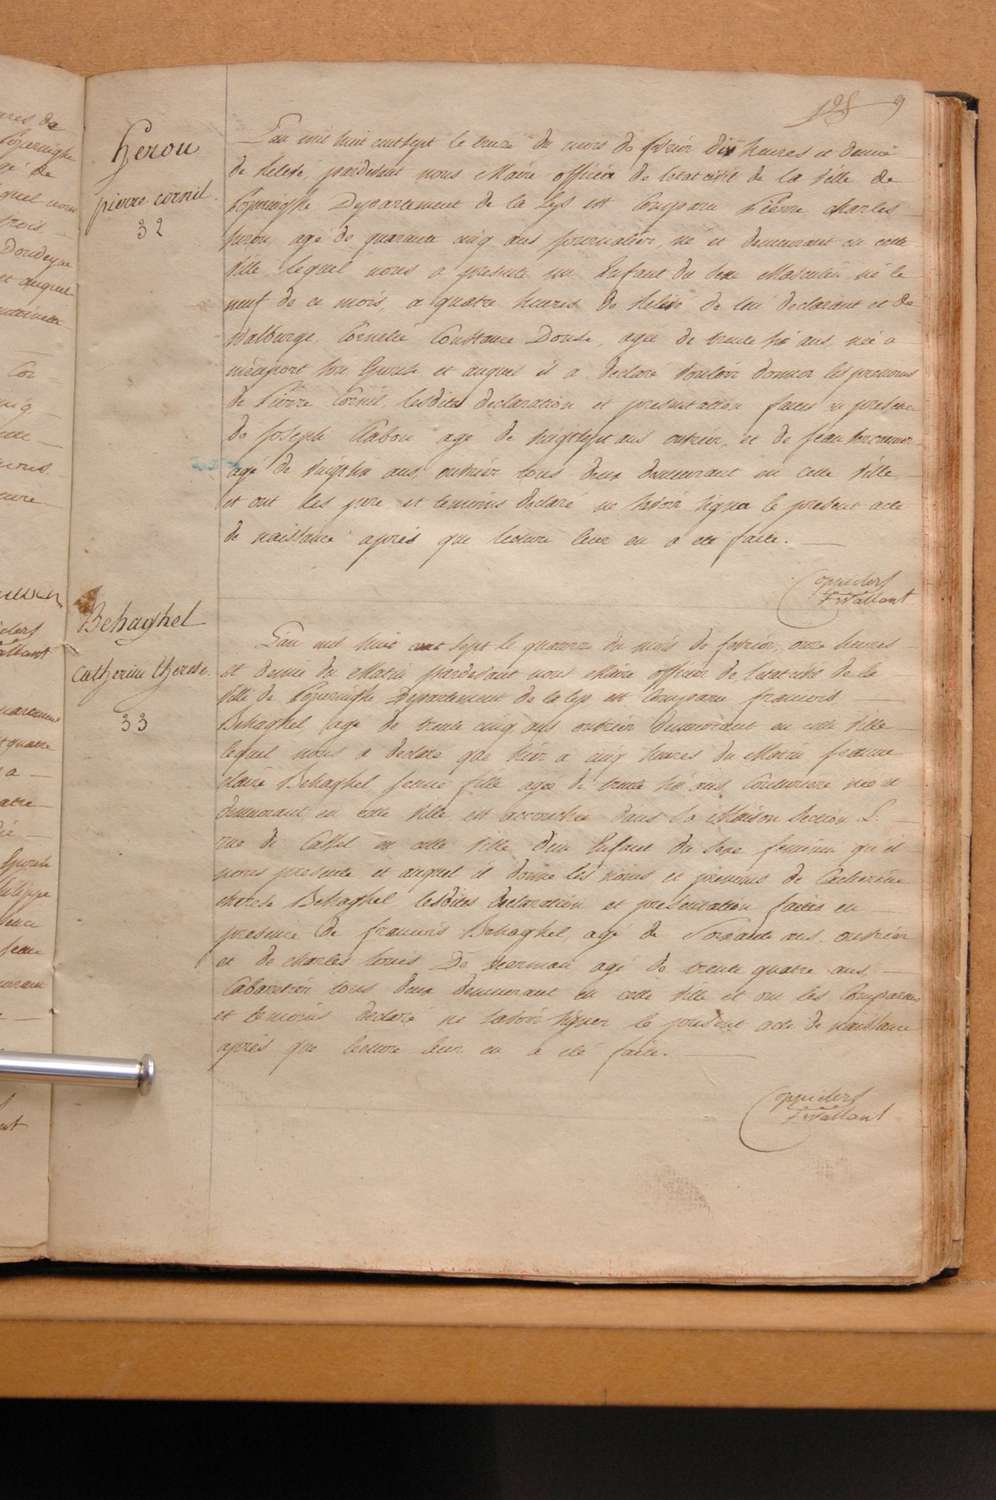 9
Herou
pierre cornil.
32
L'an mil huit cent sept le du mois de fevrier dix heures et demie
de relevé, pardevant nous Maire officier de l'etat civil de la ville de
Poperinghe Departement de la Lys est Comparu Pierre Charles
herou, agé de quarante cinq ans journalier, né et demeurant en cette
ville lequel nous a presenté un Enfant du sexe Masculin né le
neuf de ce mois, a quatre heures de relevé de lui declarant et de
Walburge Cornelie Constance agée de trente six ans, née a
nieuport son Epouse et auquel il a declaré vouloir donner les prenoms
de Pierre Cornil, lesdites declaration et presentation faites en presence
de Joseph agé de vingt sept ans ouvrier, et de jean
agé de vingt six ans, ouvrier tous deux demeurant en cette ville
et ont les pere et temoins declaré ne savoir signer le present acte
de naissance après que lecture leur en a eté faite.
F Vallant
Behaghel
catherine therese.
33
L'an mil huit cent sept le quatorze du mois de fevrier, onze heures
et demie du Matin pardevant nous Maire officier de l'etat civil de la
ville de Poperinghe Departement de la Lys est Comparu francois
Behaghel agé de trente cinq ans ouvrier demeurant en cette ville
lequel nous a declaré que hier a cinq heures du Matin
claire Behaghel jeune fille agée de trente six ans, Couturiere née et
demeurant en cette ville est accouchée dans la Maison Section L.
rue de Cassel en cette ville d'un Enfant du sexe feminin qu'il
nous presente et auquel il donne les noms et prenoms de Catherine
therese Behaghel lesdites declaration et presentation faites en
presence de francois Behaghel, agé de Soixante ans, ouvrier
et de charles louis De agé de trente quatre ans,
Cabaretier tous deux demeurant en cette ville et ont les Comparans
et temoins declaré ne savoir signer le present acte de naissance
après que lecture leur en a eté faite.
F Vallant